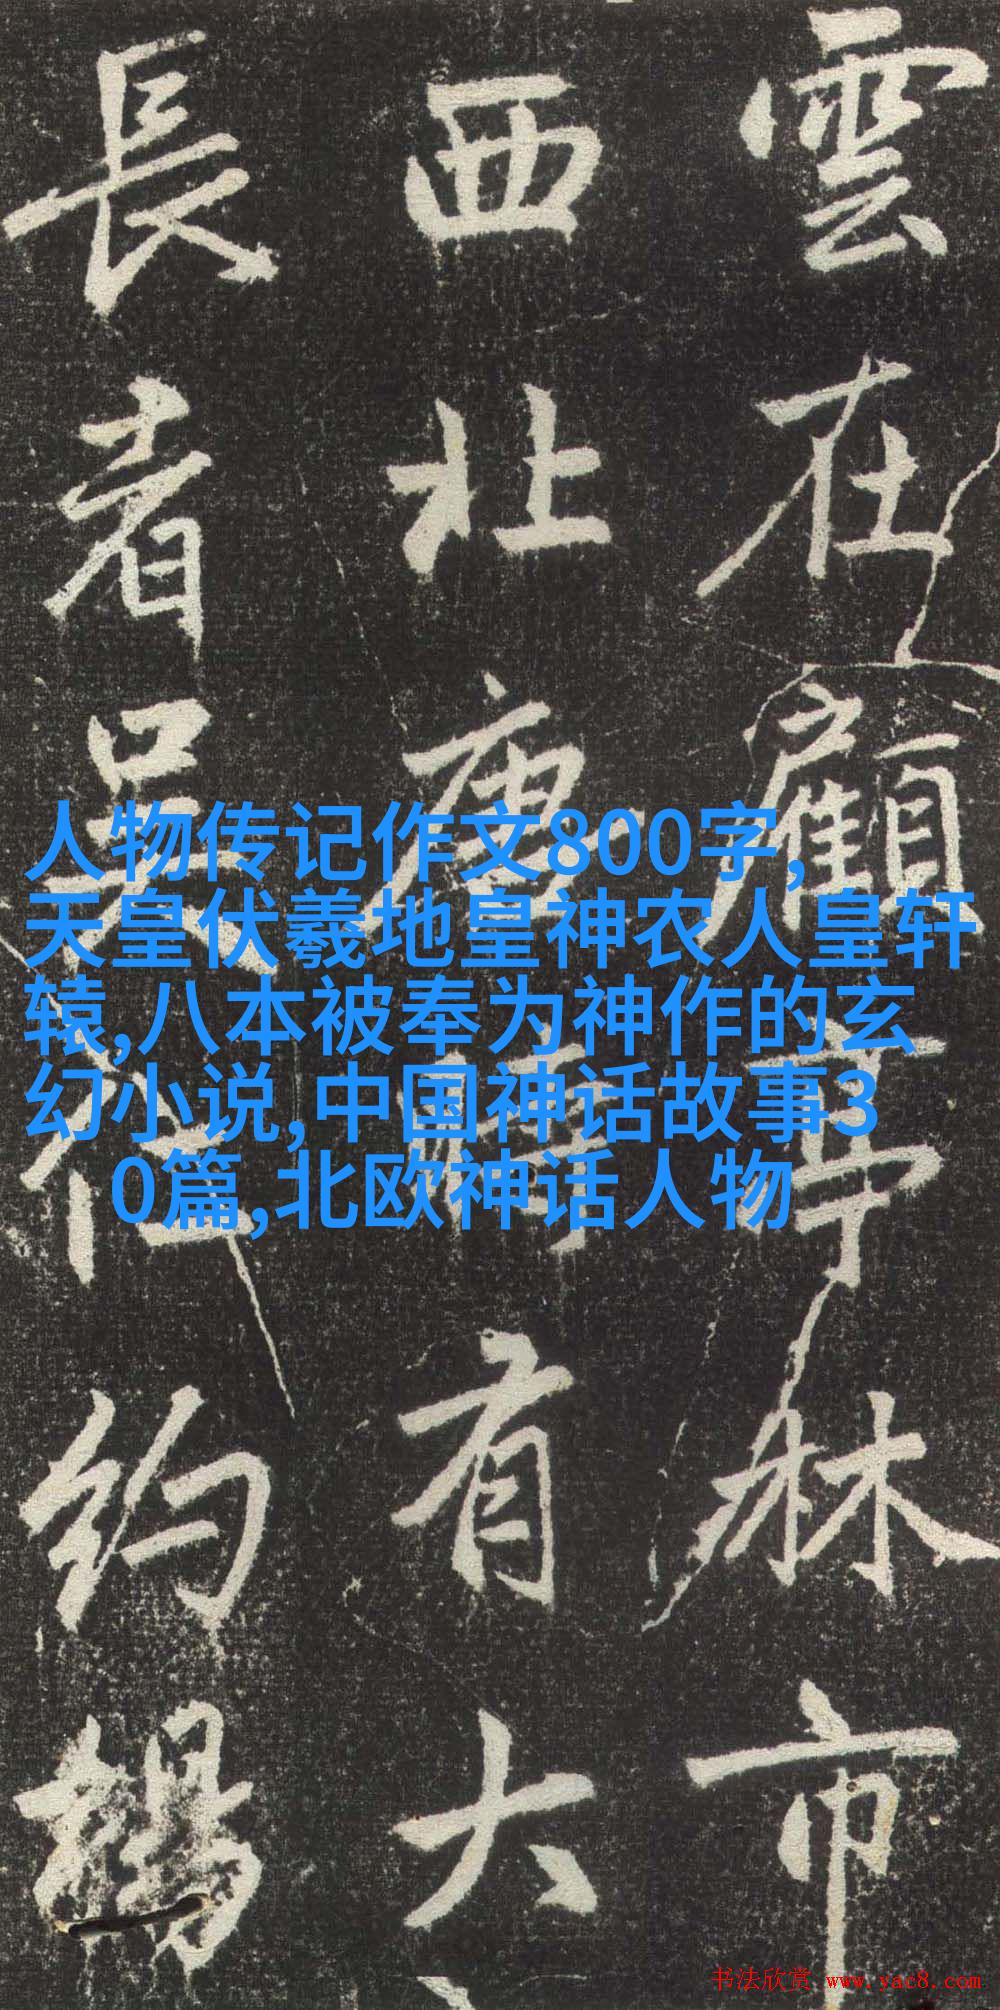 雲在顧亭林市
西北唐 有大
長者吳 約楊
人物传记作文800字,
天皇伏羲地皇神农人皇轩
辕,八本被奉为神作的玄
幻小说,中国神话故事3
0篇,北欧神话人物
书法欣赏 www.yac8.com